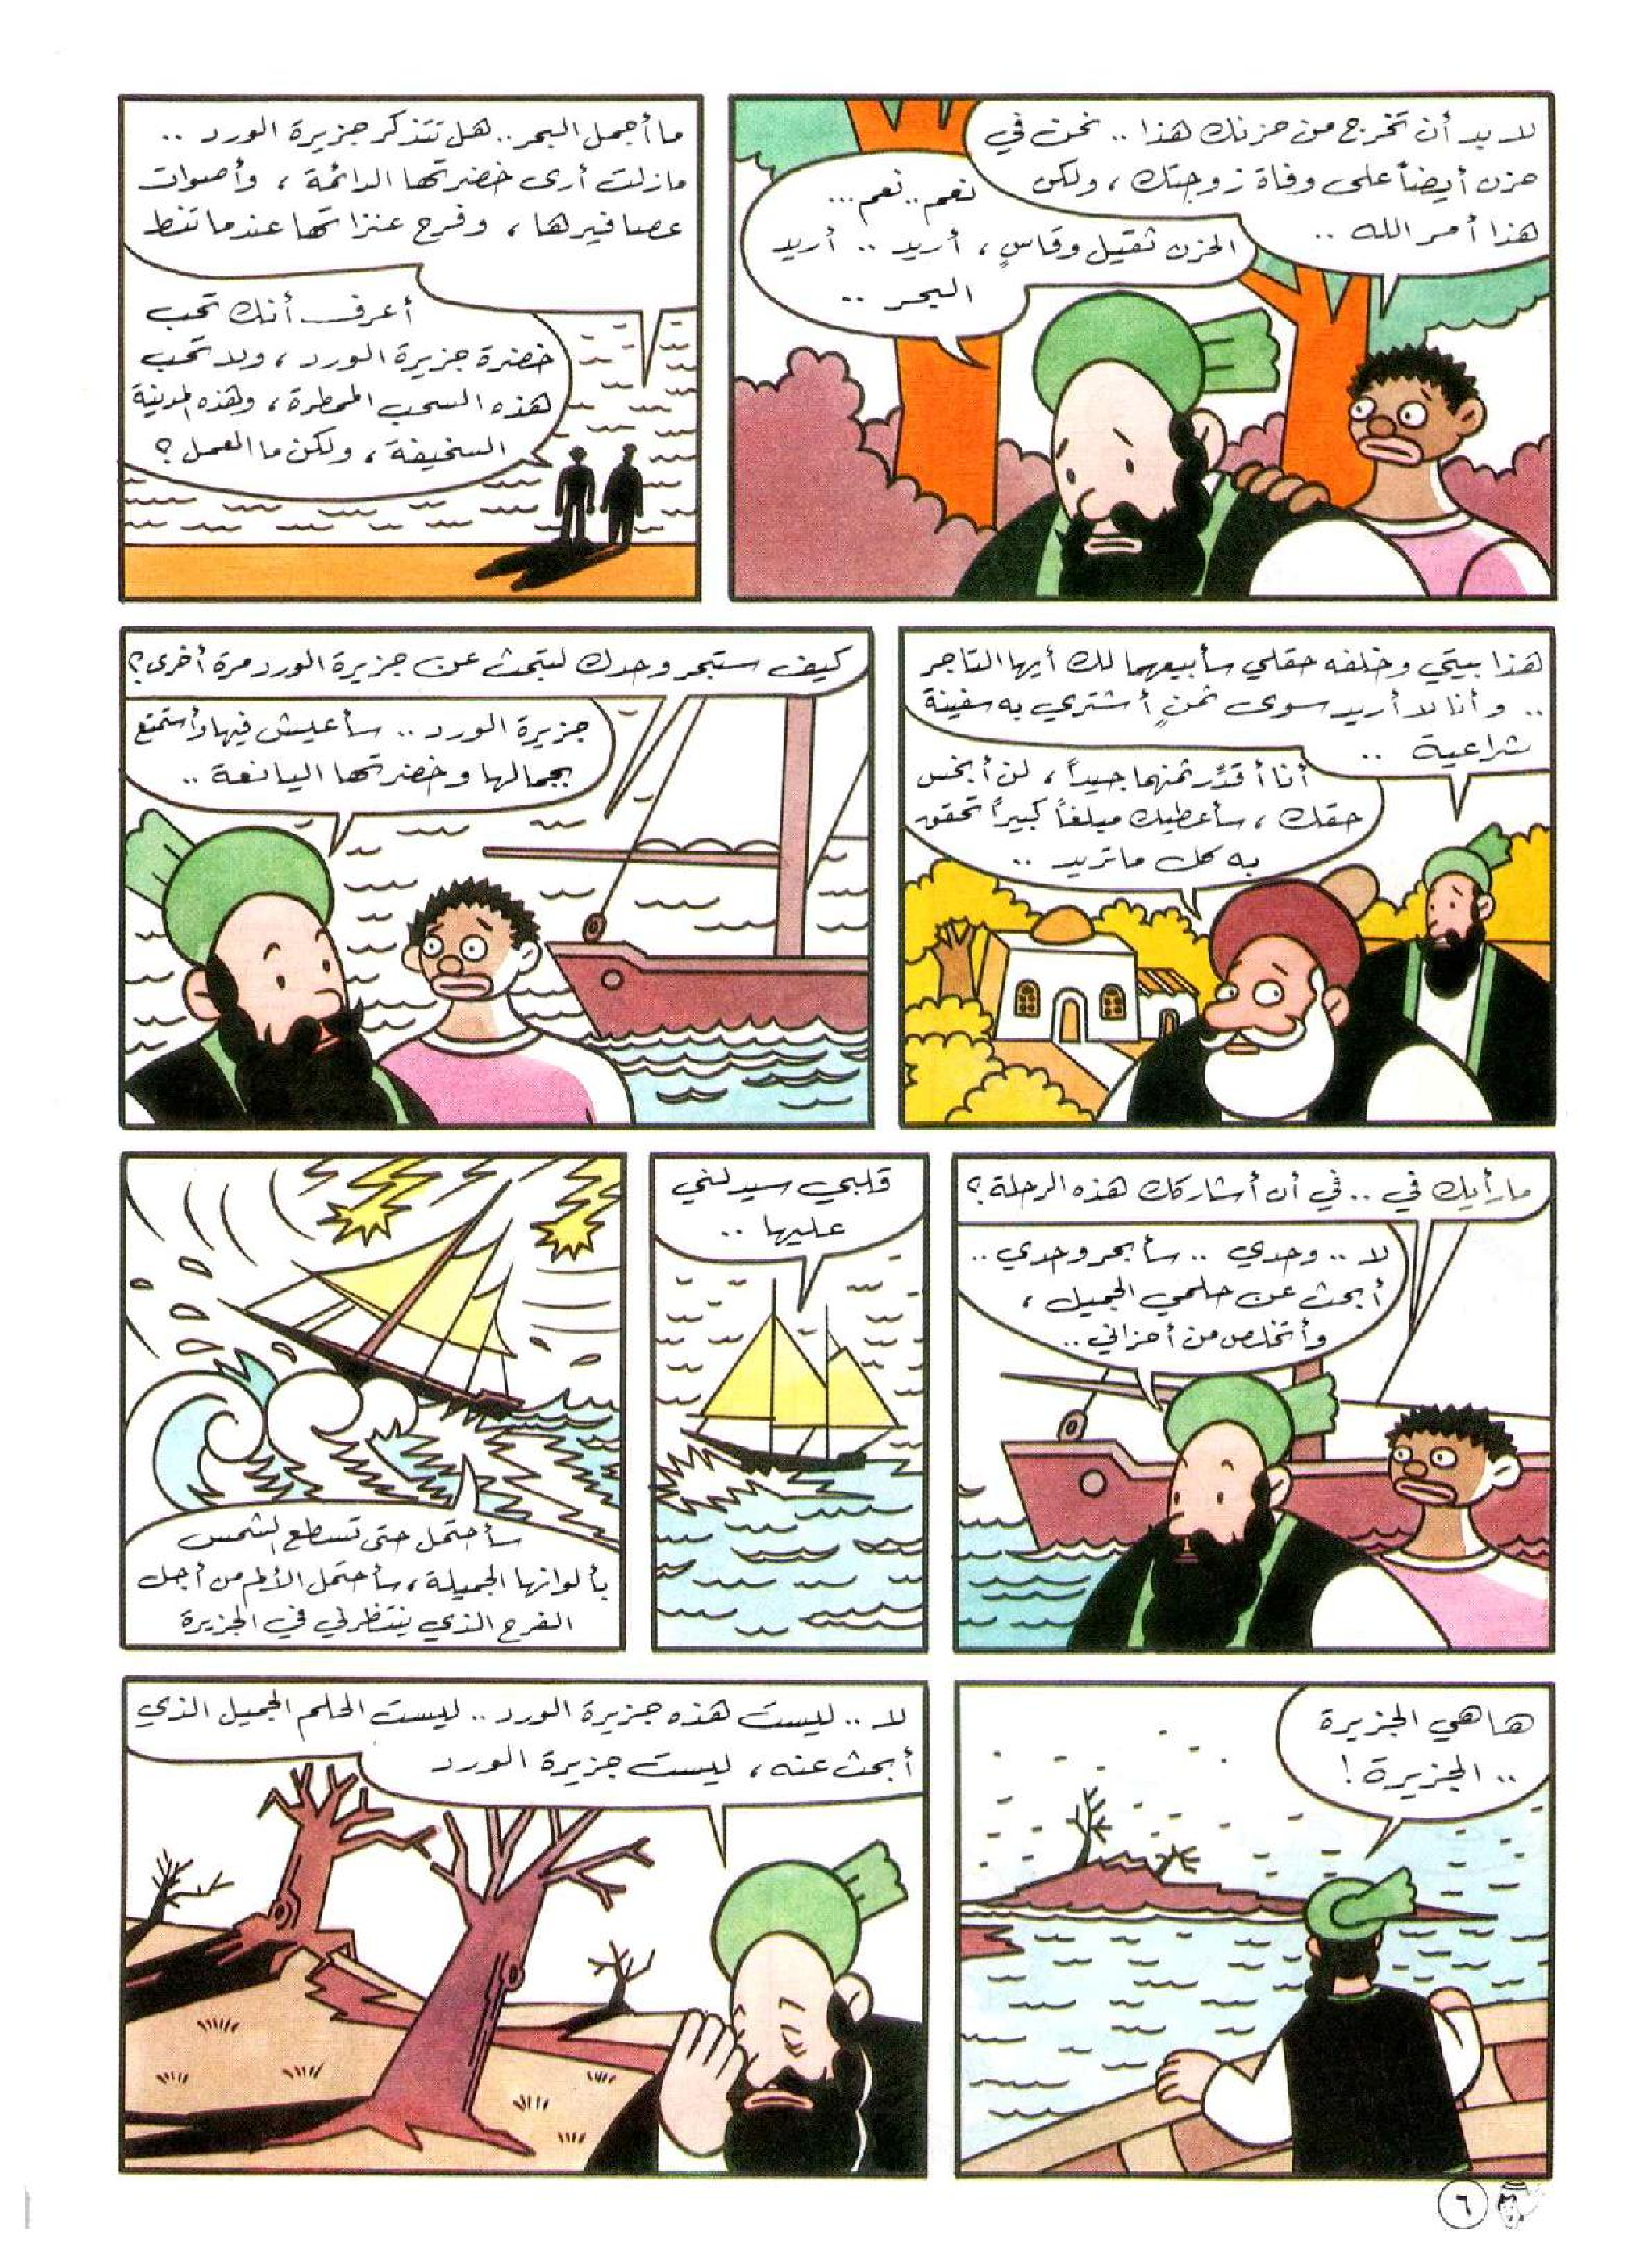 لا بد أن تخرج من حزنك هذا .. نحن في
حزن أيضاً على وفاة زوجتك ، ولكن
هذا أمر الله ..
نعم .. نعم ...
الحزن ثقيل وقاسٍ ، أريد .. أريد
البحر ..
ما أجمل البحر .. هل تتذكر جزيرة الورد ..
مازلت أرى خضرتها الدائمة ، وأصوات
عصافيرها ، وفرح عنزاتها عندما تنط
أعرف أنك تحب
خضرة جزيرة الورد ، ولا تحب
هذه السحب الممطرة ، وهذه المدينة
السخيفة ، ولكن ما العمل ؟
هذا بيتي وخلفه حقلي سأبيعهما لك أيها التاجر
.. وأنا لا أريد سوى ثمنٍ أشتري به سفينة
شراعية ..
أنا أقدّر ثمنهما جيداً ، لن أبخس
حقك ، سأعطيك مبلغاً كبيراً تحقق
به كل ما تريد ..
كيف ستبحر وحدك لتبحث عن جزيرة الورد مرة أخرى ؟
جزيرة الورد .. سأعيش فيها وأستمتع
بجمالها وخضرتها اليانعة ..
ما رأيك في .. في أن أشاركك هذه الرحلة ؟
لا .. وحدي .. سأبحر وحدي ..
أبحث عن حلمي الجميل ،
وأتخلص من أحزاني ..
قلبي سيدلني
عليها ..
سأحتمل حتى تسطع الشمس
بألوانها الجميلة ، سأحتمل الألم من أجل
الفرح الذي ينتظرني في الجزيرة
ها هي الجزيرة
.. الجزيرة !
لا .. ليست هذه جزيرة الورد .. ليست الحلم الجميل الذي
أبحث عنه ، ليست جزيرة الورد
٦